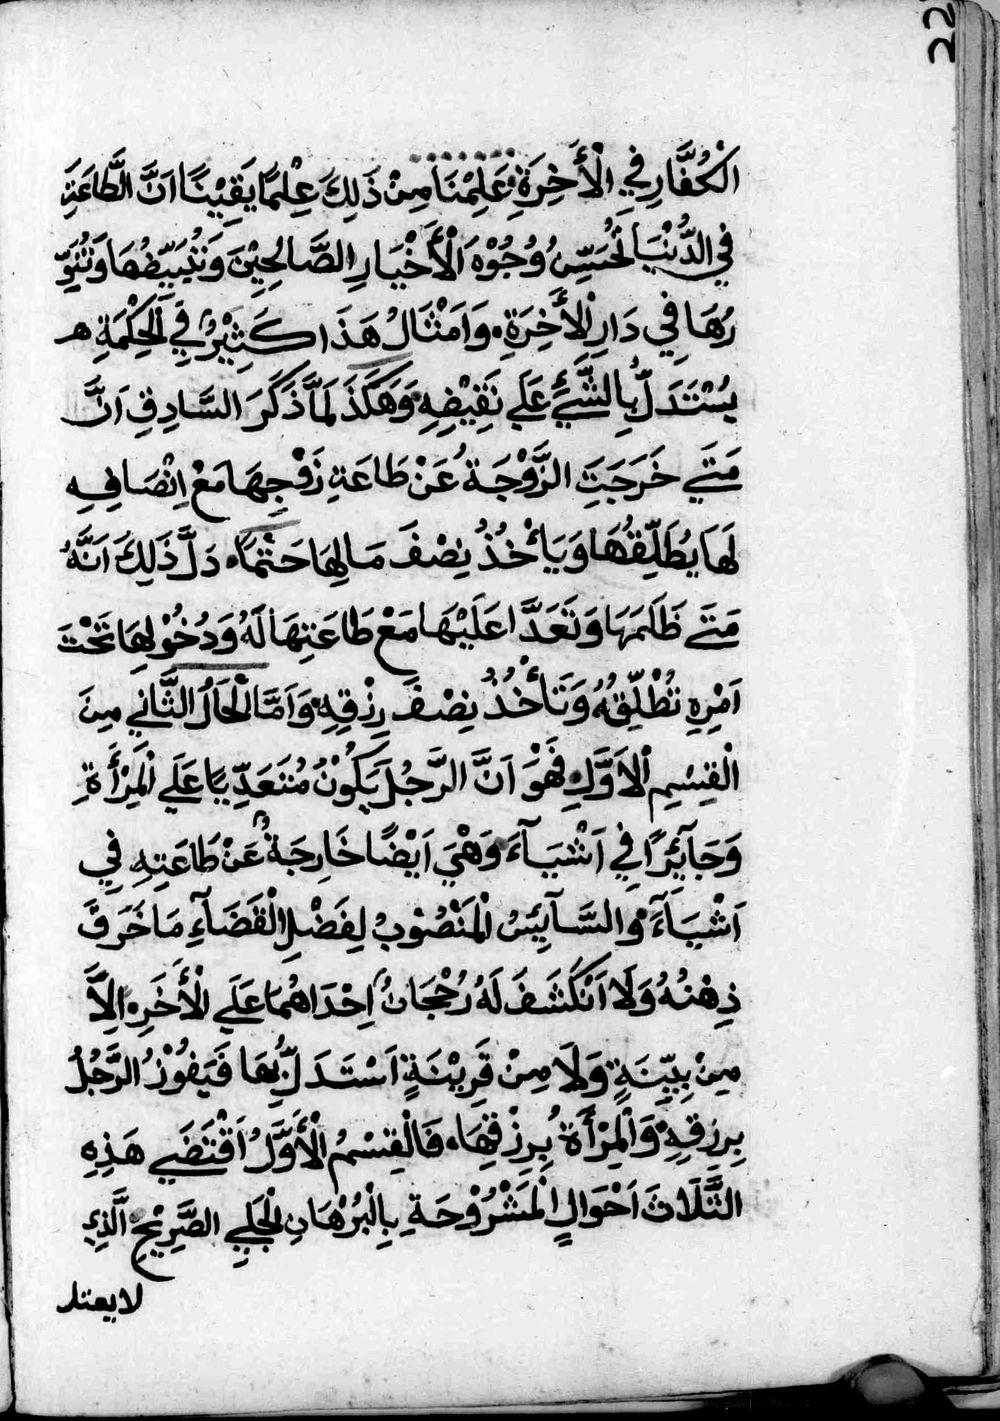 22
الْكُفَّارِ فِي الْأَخِرَةِ عَلِمْنَا مِنْ ذَلِكَ عِلْمًا يَقِيْنًا اَنَّ الطَّاعَةَ
فِي الدُّنْيَا تُحَسِّنُ وُجُوْهَ الْأَخْيَارِ الصَّالِحِيْنَ وَتُبَيِّضُهَا وَتُنَوِّ
رُهَا فِي دَارِ الْأَخِرَةِ وَاَمْثَالُ هَذَا كَثِيْرٌ فِي الْحِكْمَةِ
يُسْتَدَلُّ بِالشَّيْءِ عَلَي نَقِيْضِهِ وَهَكَذَ لَمَّا ذَكَرَ السَّادِقِ اَنَّ
مَتَي خَرَجَتِ الزَّوْجَةُ عَنْ طَاعَةِ زَوْجِهَا مَعْ اِنْصَافِهِ
لَهَا يُطَلِّقُهَا وَيَأْخُذُ نِصْفَ مَالِهَا حَتْمًا دَلَّ ذَلِكَ اَنَّهُ
مَتَي ظَلَمَهَا وَتَعَدَّا عَلَيْهَا مَعْ طَاعَتِهَا لَهُ وَدُخُوْلِهَا تَحْتَ
اَمْرِهِ تُطَلِّقُهُ وَتَأْخُذُ نِصْفَ رِزْقِهِ وَاَمَّا الْحَالُ الثَّانِي مِنَ
الْقِسْمِ الْاَوَّلِ فَهْوَ اَنَّ الرَّجُلَ يَكُوْنُ مُتَعَدِّيًا عَلَي الْمَرْأَةِ
وَجَآئِرًا فِي اَشْيَآءَ وَهْيَ اَيْضًا خَارِجَةٌ عَنْ طَاعَتِهِ فِي
اَشْيَآءَ وَالسَّآيِسُ الْمَنْصُوْبُ لِفَضْلِ الْقَضَآءِ مَا خَرَقَ
ذِهْنُهُ وَلَا اَنْكَشَفَ لَهُ رُجْحَانُ اِحْدَاهُمَا عَلَي الْأَخَرِ اِلاَّ
مِنْ بَيِّنَةٍ وَلَا مِنْ قَرِيْنَةٍ اَسْتَدَلَّ بِهَا فَيَفُوْزُ الرَّجُلُ
بِرِزقِهِ وَالْمَرْأَةُ بِرِزْقِهَا فَالْقِسْمُ الْأَوَّلُ اَقْتَضَي هَذِهِ
الثَّلَاثَ اَحْوَالٍ الْمَشْرُوْحَةِ بِالْبُرْهَانِ الْجَلِي الصَّرِيْحِ الَّذِي
لا يعتد